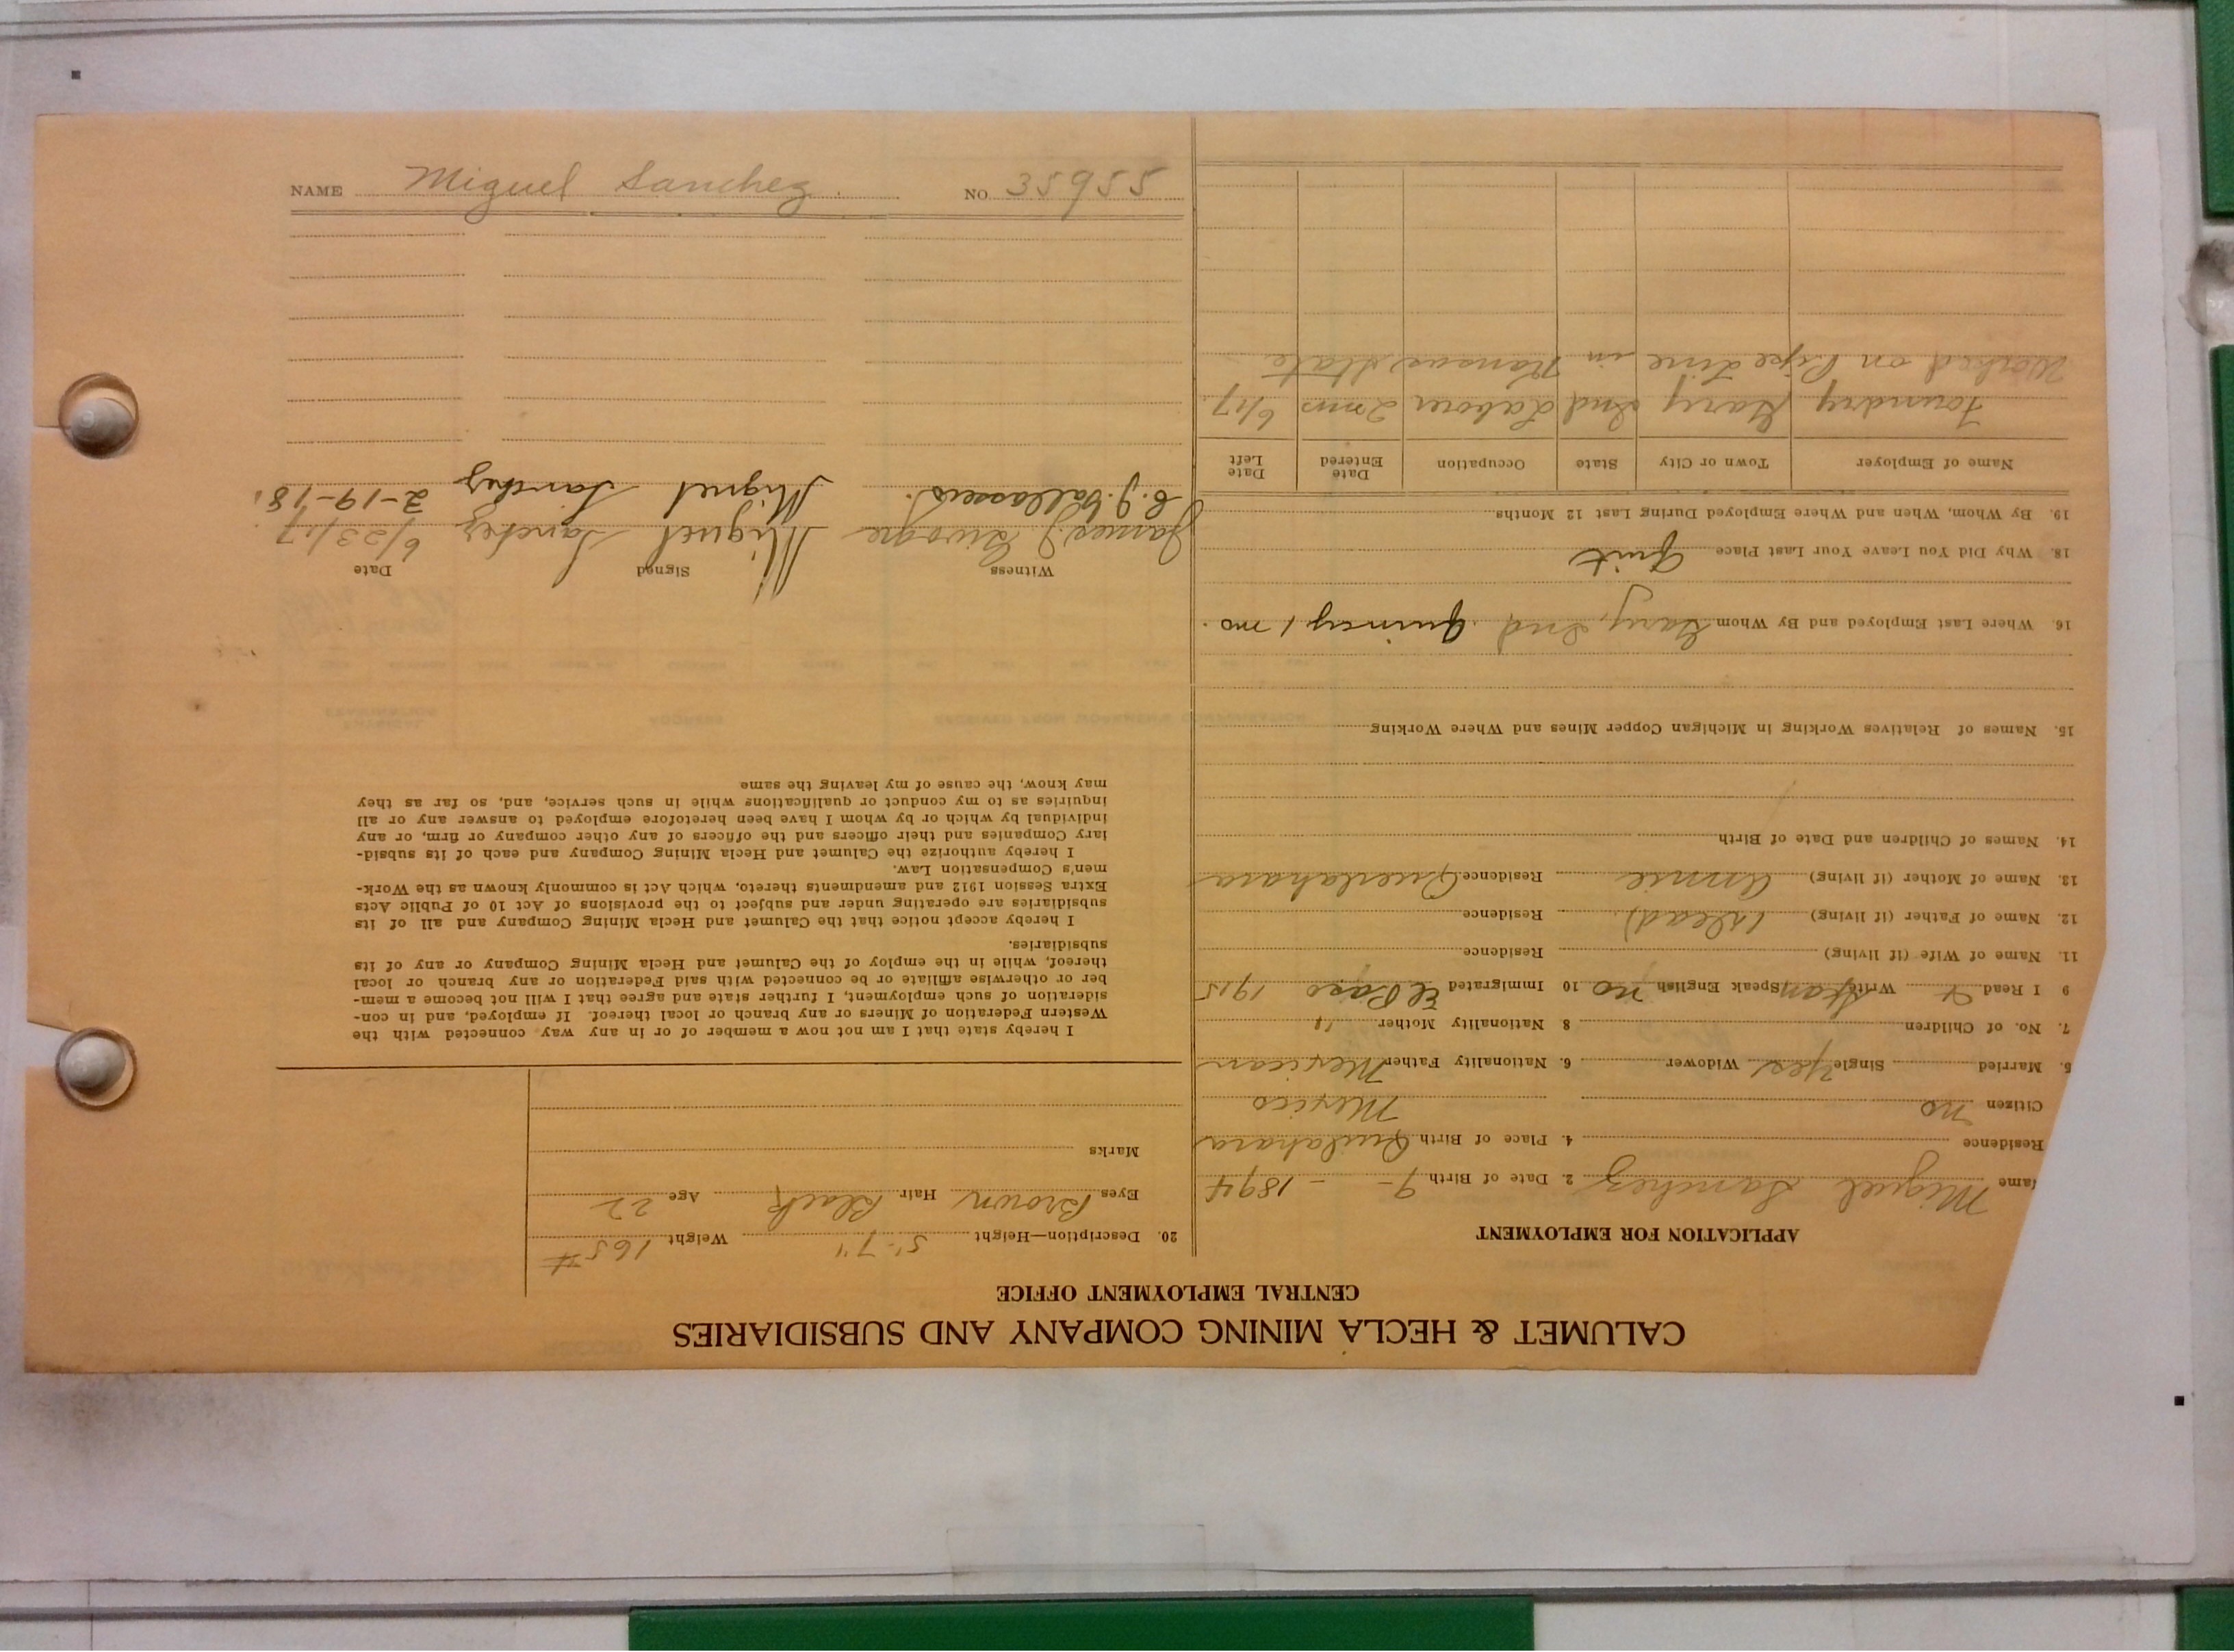 CALUMET & HECLA MINING COMPANY AND SUBSIDIARIES
CENTRAL EMPLOYMENT OFFICE
APPLICATION FOR EMPLOYMENT
ame Miguel Sanchez 2. Date of Birth 9 - - 1894
Residence 4. Place of Birth Quilahara
Citizen no Mexico
5. Married Single Yes Widower 6. Nationality Father Mexican
7. No. of Children 8 Nationality Mother "
9 I Read Write Span Speak English no 10 Immigrated El Paso 1915
11. Name of Wife (if living) Residence
12. Name of Father (if living) (dead) Residence
13. Name of Mother (if living) Annie Residence Queilahara
14. Names of Children and Date of Birth
15. Names of Relatives Working in Michigan Copper Mines and Where Working
16. Where Last Employed and By Whom Gary, Ind Quincy 1 mo.
18. Why Did You Leave Your Last Place Quit
19. By Whom, When and Where Employed During Last 12 Months
Name of Employer Town or City State Occupation Date Entered Date Left
Foundry Gary Ind Laborer 2 mos 6/17
Worked on Pipe Line in Kansas State
20. Description—Height 5'-7" Weight 165#
Eyes Brown Hair Black Age 22
Marks
I hereby state that I am not now a member of or in any way connected with the
Western Federation of Miners or any branch or local thereof. If employed, and in con-
sideration of such employment, I further state and agree that I will not become a mem-
ber or otherwise affiliate or be connected with said Federation or any branch or local
thereof, while in the employ of the Calumet and Hecla Mining Company or any of its
subsidiaries.
I hereby accept notice that the Calumet and Hecla Mining Company and all of its
subsidiaries are operating under and subject to the provisions of Act 10 of Public Acts
Extra Session 1912 and amendments thereto, which Act is commonly known as the Work-
men's Compensation Law.
I hereby authorize the Calumet and Hecla Mining Company and each of its subsid-
iary Companies and their officers and the officers of any other company or firm, or any
individual by which or by whom I have been heretofore employed to answer any or all
inquiries as to my conduct or qualifications while in such service, and, so far as they
may know, the cause of my leaving the same
Witness Signed Date
James J. Miguel Sanchez 6/23/17
C. J. Miguel Sanchez 2-19-18.
NAME Miguel Sanchez. NO. 35955